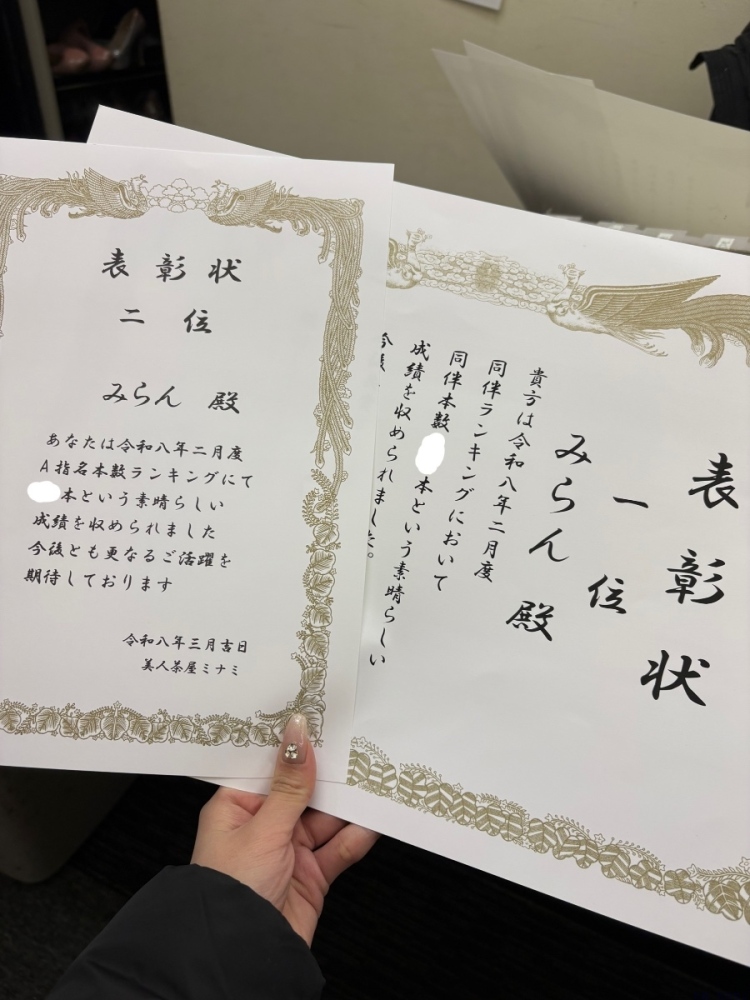 表彰状
二位
みらん 殿
あなたは令和八年二月度
A指名本数ランキングにて
本という素晴らしい
成績を収められました
今後とも更なるご活躍を
期待しております
令和八年三月吉日
美人茶屋ミナミ
表彰状
一位
みらん 殿
貴方は令和八年二月度
同伴ランキングにおいて
同伴本数 本という素晴らしい
成績を収められました。